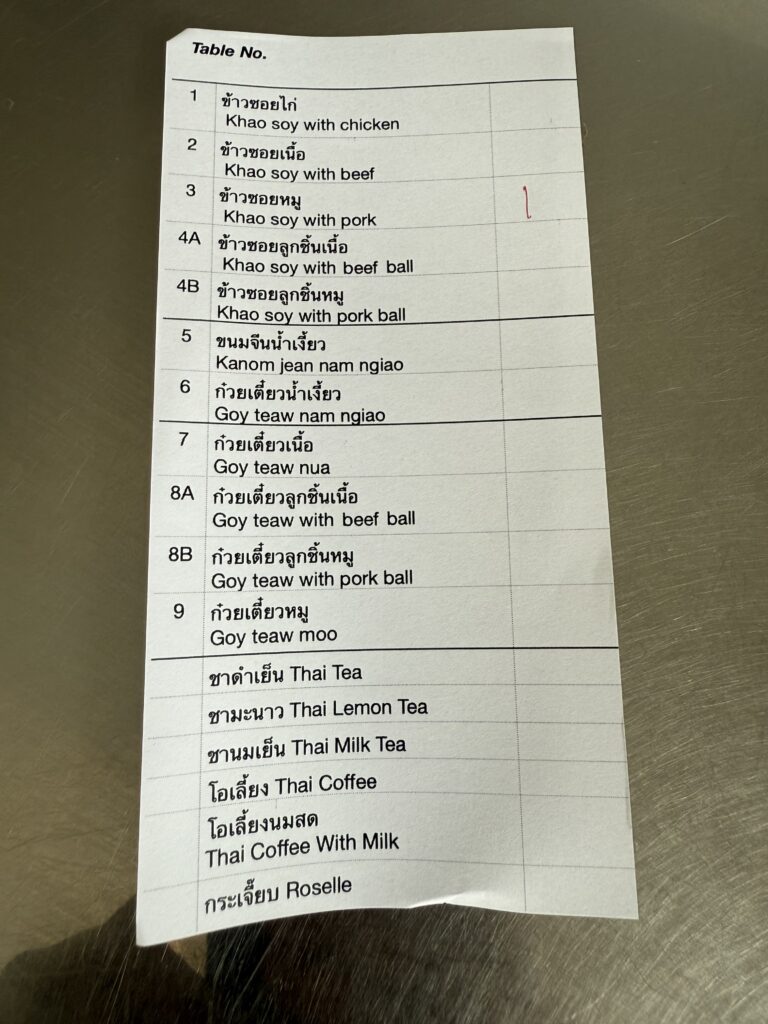 Table No.
1 ข้าวซอยไก่
Khao soy with chicken
2 ข้าวซอยเนื้อ
Khao soy with beef
3 ข้าวซอยหมู
Khao soy with pork 1
4A ข้าวซอยลูกชิ้นเนื้อ
Khao soy with beef ball
4B ข้าวซอยลูกชิ้นหมู
Khao soy with pork ball
5 ขนมจีนน้ำเงี้ยว
Kanom jean nam ngiao
6 ก๋วยเตี๋ยวน้ำเงี้ยว
Goy teaw nam ngiao
7 ก๋วยเตี๋ยวเนื้อ
Goy teaw nua
8A ก๋วยเตี๋ยวลูกชิ้นเนื้อ
Goy teaw with beef ball
8B ก๋วยเตี๋ยวลูกชิ้นหมู
Goy teaw with pork ball
9 ก๋วยเตี๋ยวหมู
Goy teaw moo
ชาดำเย็น Thai Tea
ชามะนาว Thai Lemon Tea
ชานมเย็น Thai Milk Tea
โอเลี้ยง Thai Coffee
โอเลี้ยงนมสด
Thai Coffee With Milk
กระเจี๊ยบ Roselle